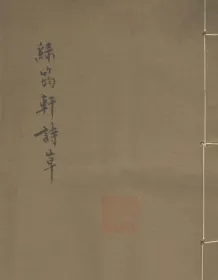 綠筠軒詩草